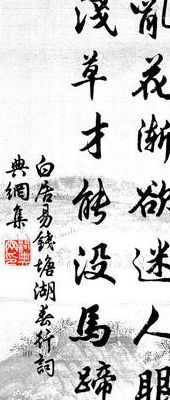 亂花漸欲迷人眼
淺草才能没馬蹄
白居易錢塘湖春行詞
典網集